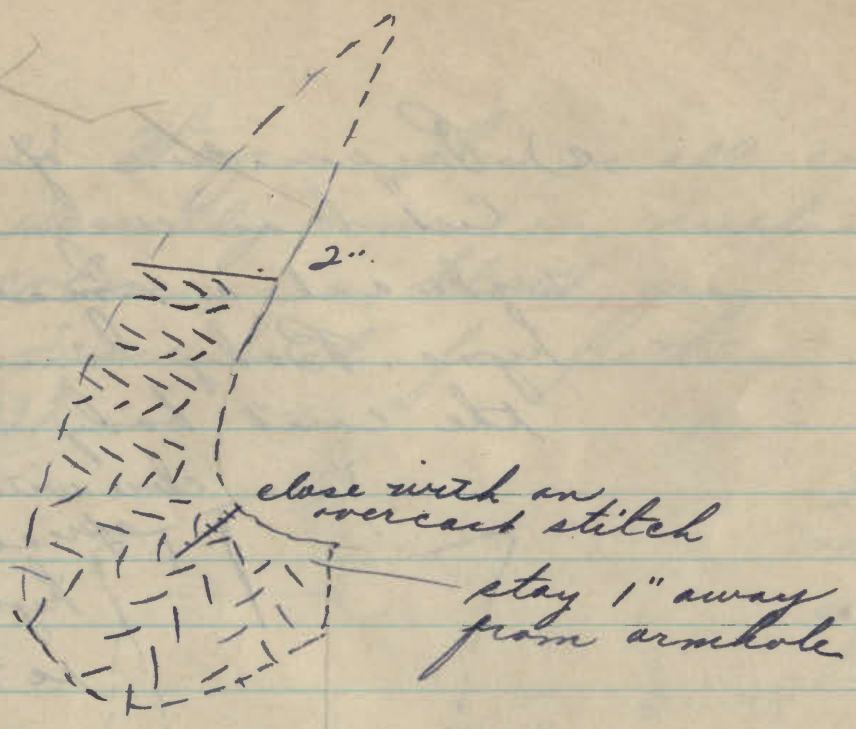 2"
close with an
overcast stitch
stay 1" away
from armhole